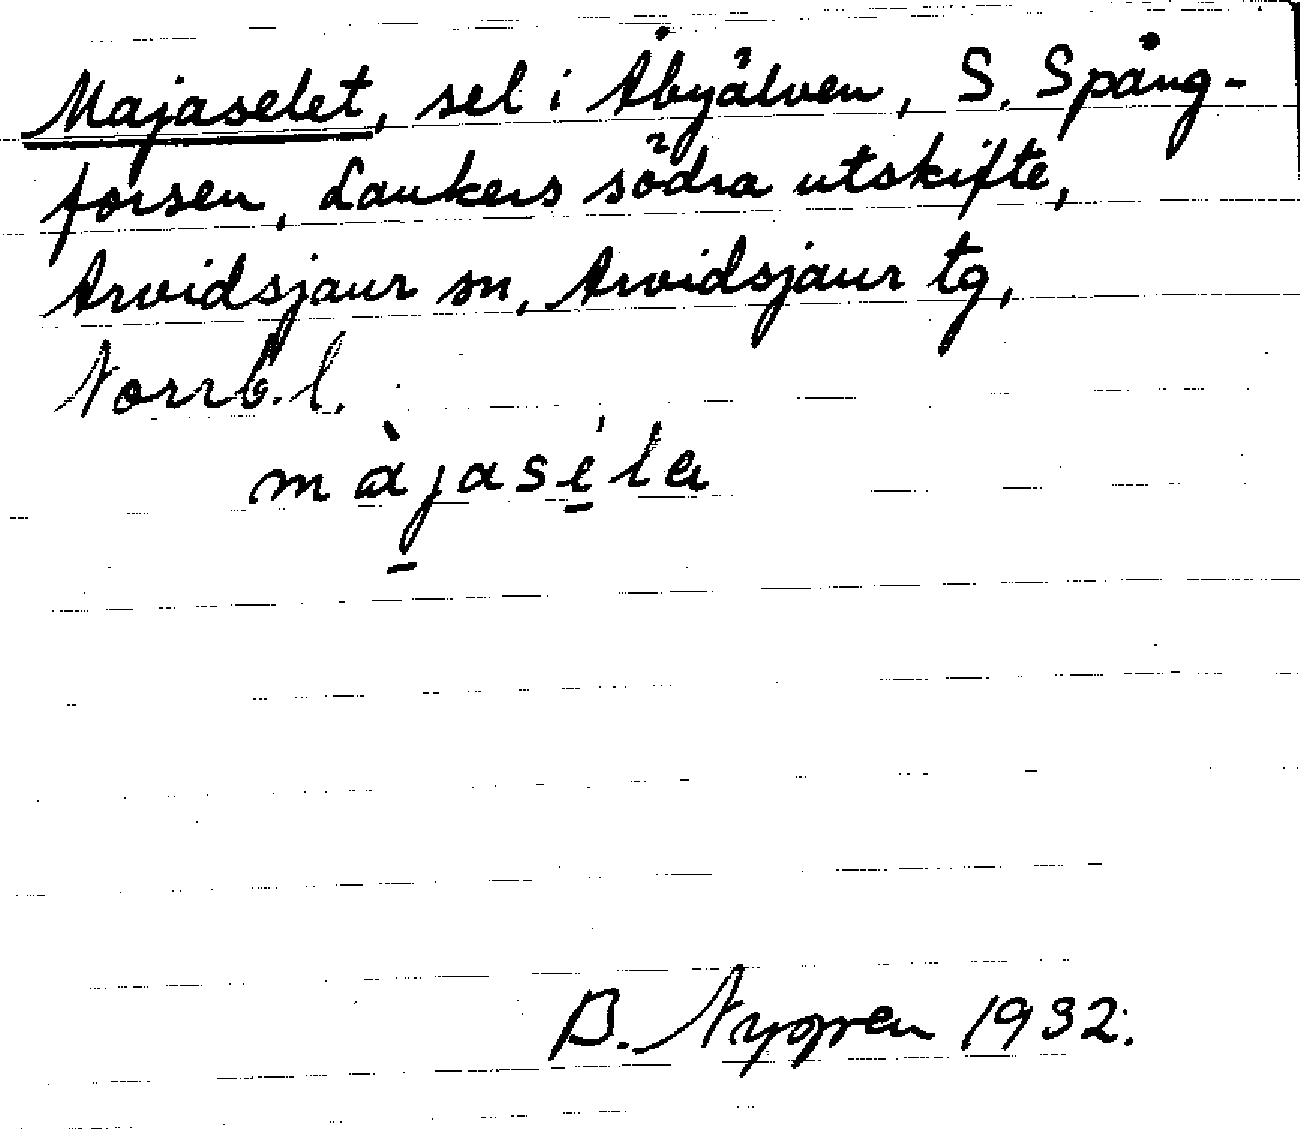 Majaselet, sel i Åbyälven, S. Spång-
forsen, Laukers södra utskifte,
Arvidsjaur sn, Arvidsjaur tg,
Norrb.l.
màjaséla
B. Nygren 1932.